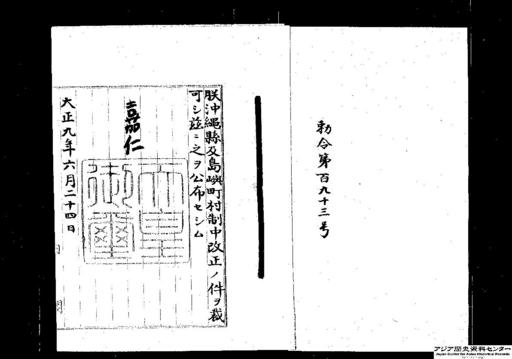 勅令第百九十三号
朕沖縄縣及島嶼町村制中改正ノ件ヲ裁
可シ茲ニ之ヲ公布セシム
嘉仁
天皇
御璽
大正九年六月二十四日
アジア歴史資料センター
Japan Center for Asian Historical Records